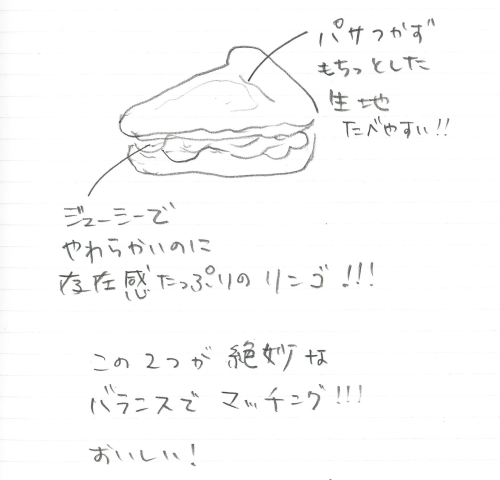 パサつかず
もちっとした
生地
たべやすい!!
ジューシーで
やわらかいのに
存在感たっぷりのリンゴ!!!
この2つが絶妙な
バランスでマッチング!!!
おいしい!